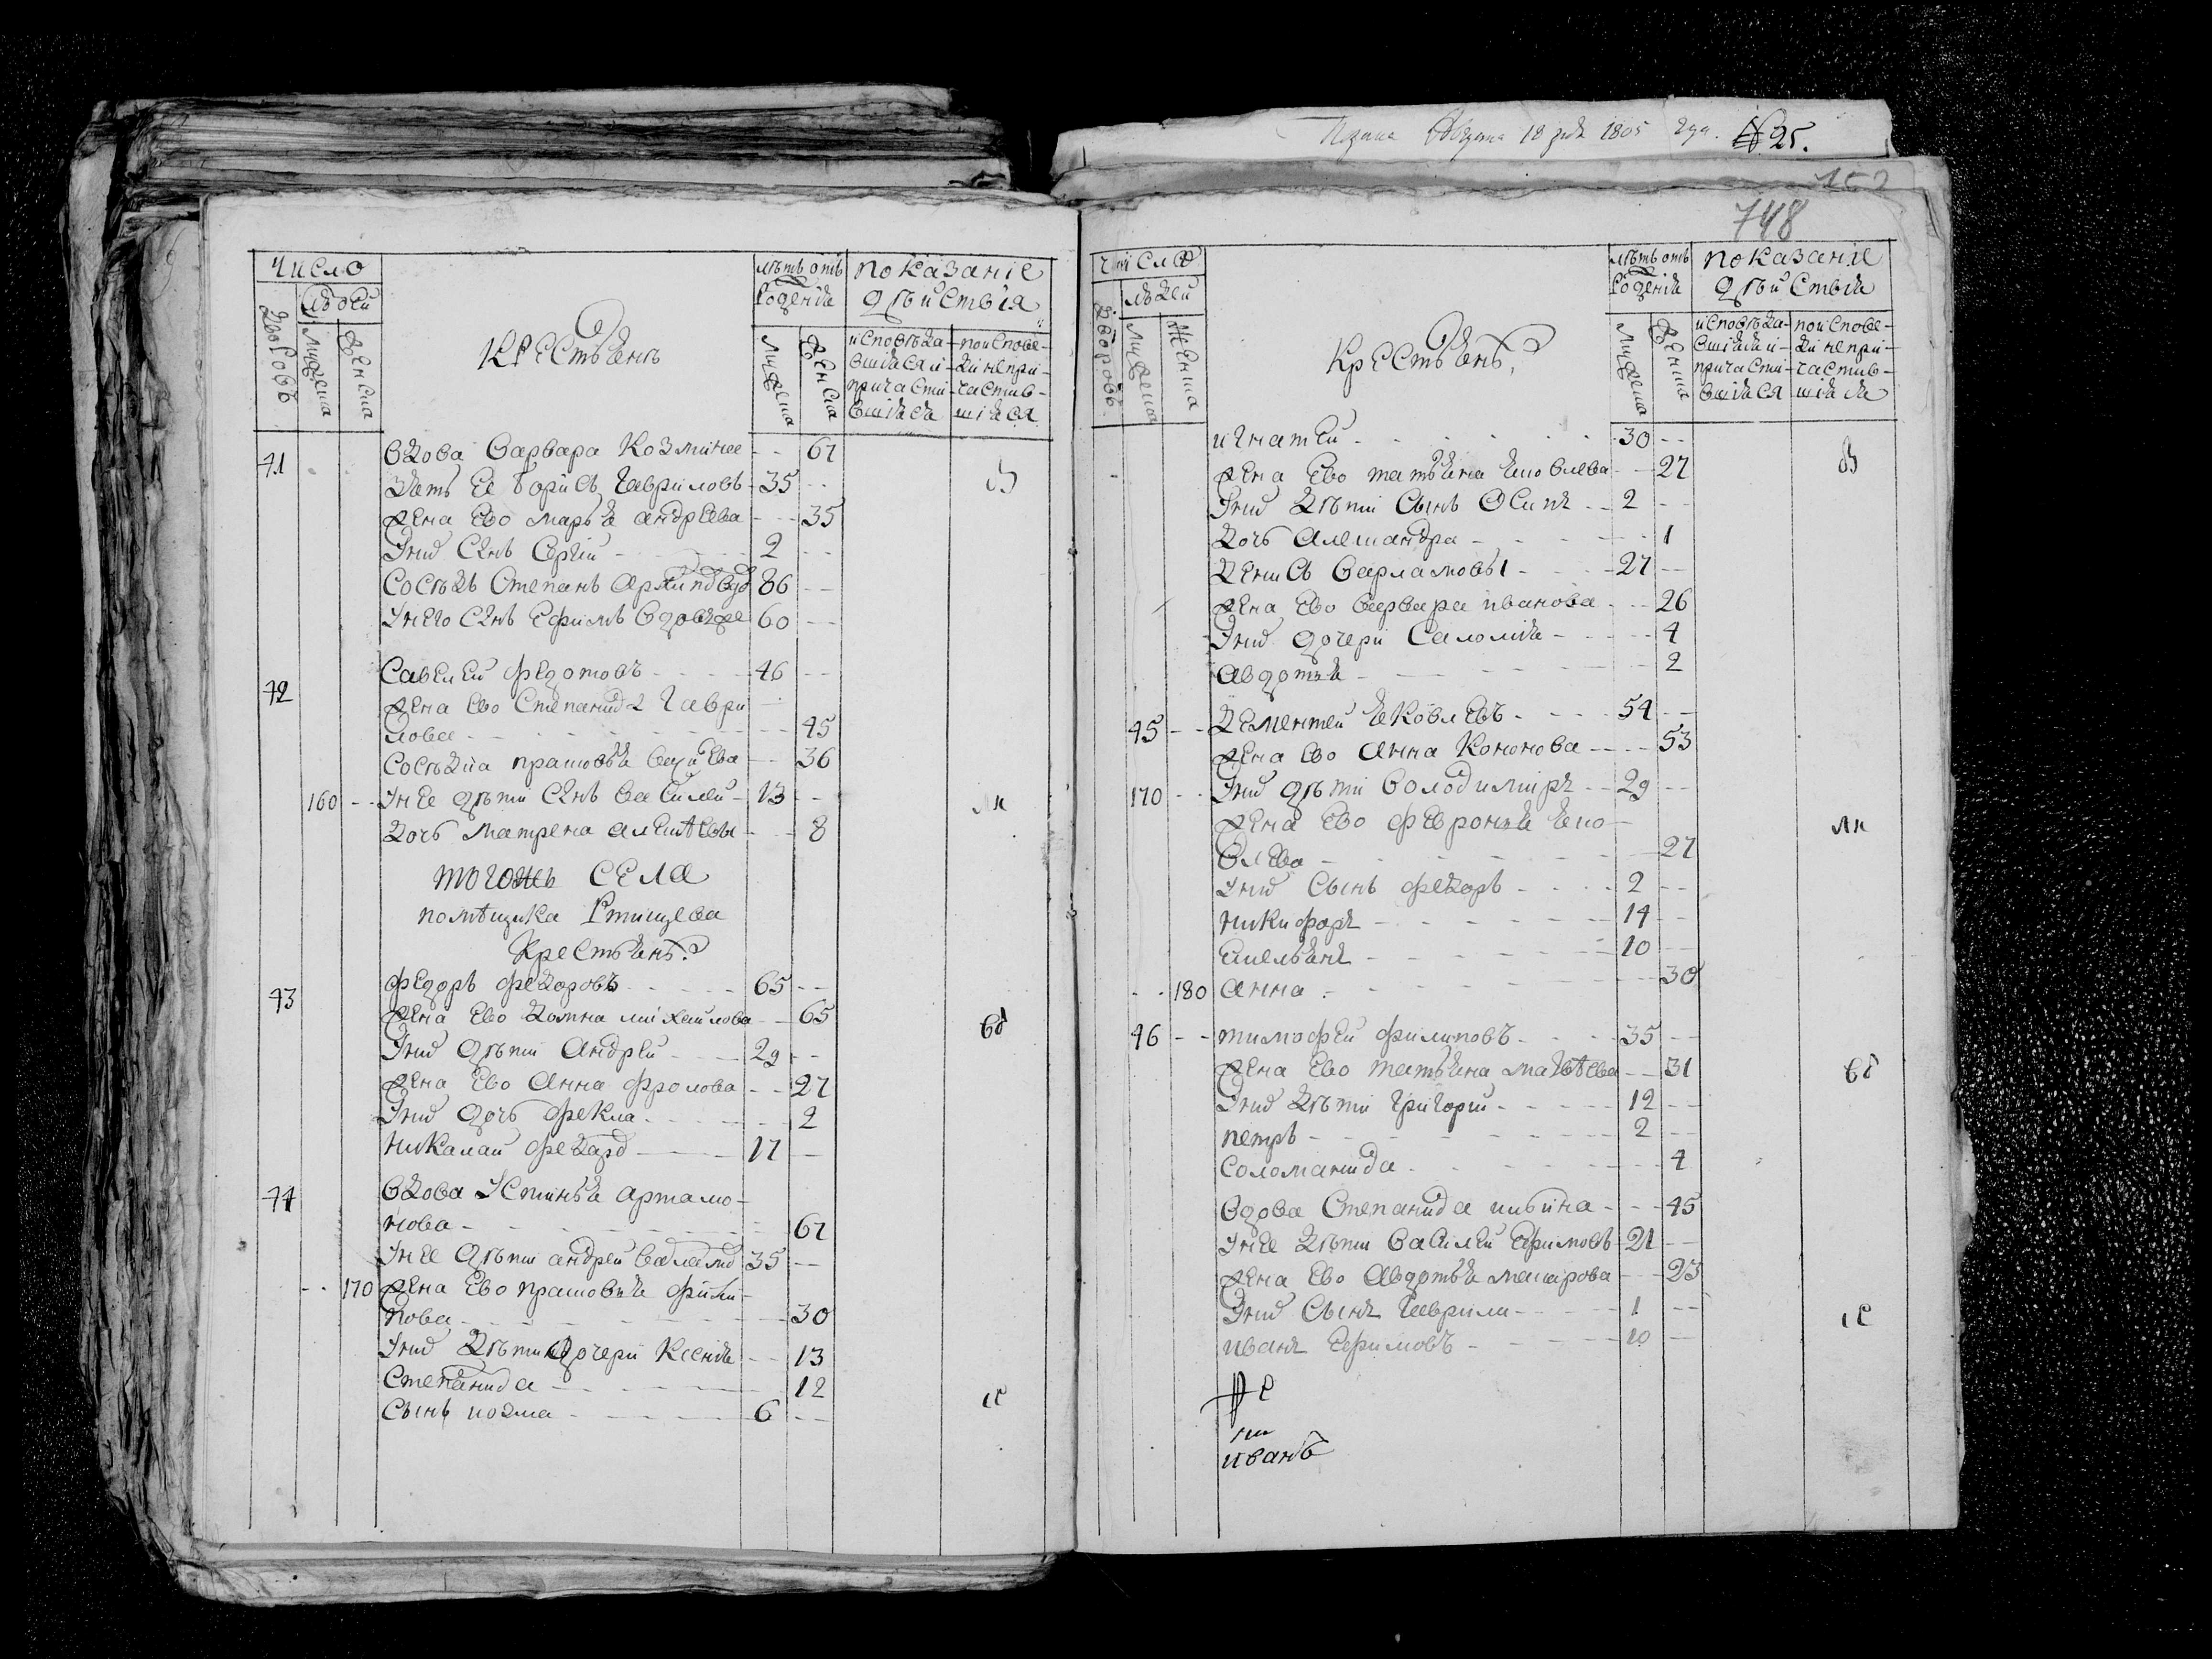 Подана 18 дня 1805 года. № 25.
748
Число
Людей
Дворовъ
Мужеска
Женска
Крестьянъ
лѣтъ отъ
Рожденiя
Мужеска
Женска
показанiе
дѣйствiя
исповѣда-
вшiяся и
причасти-
вшiяся
по испове-
ди не при-
частив-
шiяся
41 вдова варвара Козмина -- 67
Зять Ее Борисъ Гавриловъ 35 --
жена Ево марья андрѣева -- 35
Унихъ Снъ Сергiй 2 --
Сосѣдъ Степанъ вдов 86 --
Унего Снъ Ефимъ вдов 60 --
42 Савелей федотовъ 46 --
жена Ево Степанида Гаври-
лова -- 45
Сосѣдка прасковья -- 36
160 Унее дѣти Снъ василей 13 --
дочь матрена алексѣевы -- 8
того жъ Села
помѣщика Ртищева
Крестьянъ
43 федоръ федоровъ 65 --
жена Ево домна михаилова -- 65
Унихъ дѣти андрей 29 --
жена Ево анна фролова -- 27
Унихъ дочь фекла -- 2
николаи федоров 17 --
44 вдова Устинья артамо-
нова -- 67
Унее дѣти андрей 35 --
170 жена Ево прасковья фили-
пова -- 30
Унихъ дѣти дочери Ксенiя -- 13
Степанида -- 12
Сынъ козма 6 --
Число
людей
Дворовъ
Мужеска
Женска
Крестьянъ
лѣтъ отъ
Рожденiя
Мужеска
Женска
показанiе
дѣйствiя
исповѣда-
вшiяся и
причасти-
вшiяся
по испове-
ди не при-
частив-
шiяся
игнатей 30 --
жена Ево татьяна яковлева -- 27
Унихъ дѣти Сынъ Осипъ 2 --
дочь александра -- 1
денисъ варламовы 27 --
жена Ево варвара иванова -- 26
Унихъ дочери Саломiя -- 4
авдотья -- 2
45 дементей яковлевъ 54 --
жена Ево анна Кононова -- 53
170 Унихъ дѣти володимиръ 29 --
жена Ево февронья яко-
влева -- 27
Унихъ Сынъ федоръ 2 --
никифоръ 14 --
емельянъ 10 --
180 анна -- 30
46 тимофей филиповъ 35 --
жена Ево татьяна матвѣева -- 31
Унихъ дѣти григорiй 12 --
петръ 2 --
Соломанида -- 4
вдова Степанида -- 45
Унее дѣти василей Ефимовъ 21 --
жена Ево авдотья макарова -- 23
Унихъ Сынъ гаврила 1 --
иванъ Ефимовъ 10 --
иванъ